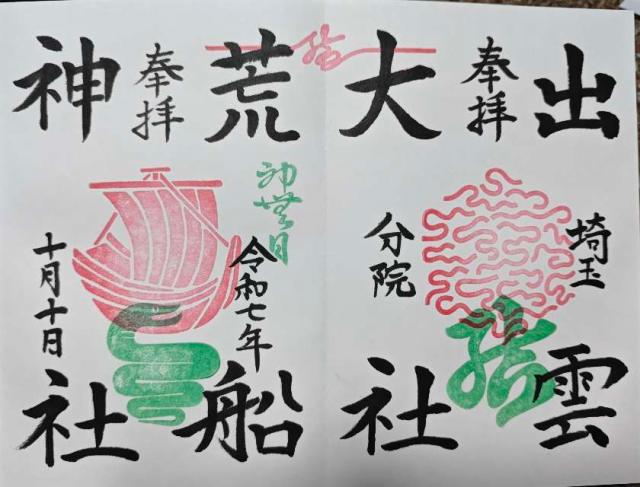 出雲
奉拝
埼玉
分院
大社
結
荒船
神無月
令和七年
奉拝
十月十日
神社
結